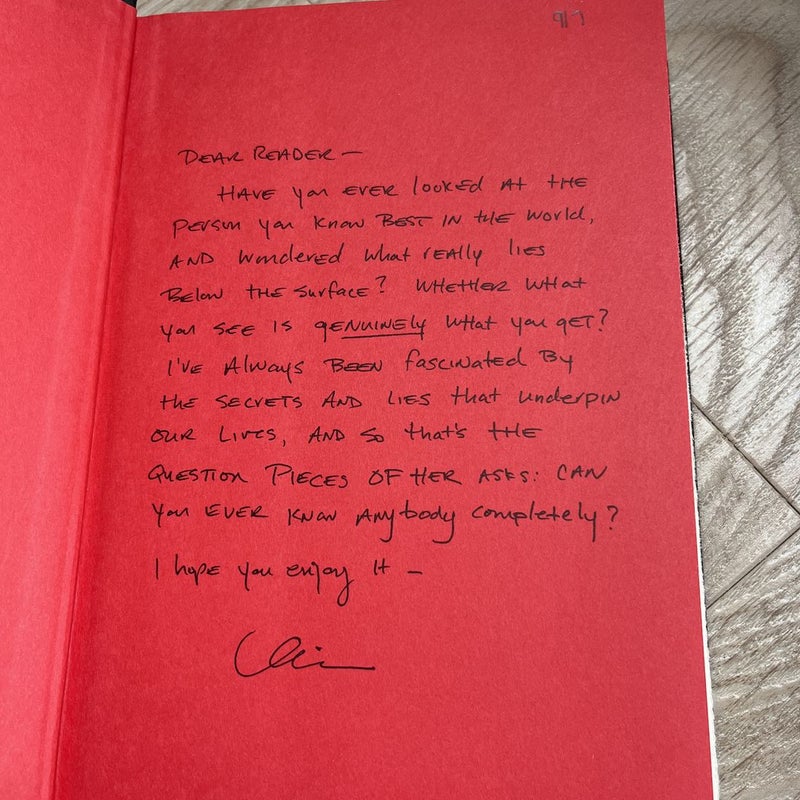 DEAR READER —
HAVE you EVER looked AT THE
PERSON you KNOW BEST IN THE World,
AND wondered what rEAlly lIES
BElow THE surfacE? WHETHER WHAT
you SEE IS gENUINELY WHAT you gET?
I'VE Always BEEN fascinated By
THE SECRETS AND LIES that underpin
OUR LIVES, AND so that's THE
QUESTION PIECES OF HER ASKS: CAN
you EVER KNOW ANybody completely?
I hope you enjoy It —